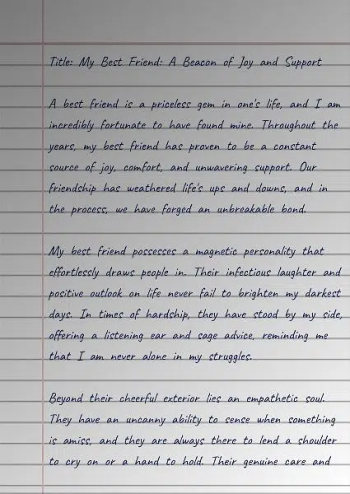 Title: My Best Friend: A Beacon of Joy and Support
A best friend is a priceless gem in one's life, and I am
incredibly fortunate to have found mine. Throughout the
years, my best friend has proven to be a constant
source of joy, comfort, and unwavering support. Our
friendship has weathered life's ups and downs, and in
the process, we have forged an unbreakable bond.
My best friend possesses a magnetic personality that
effortlessly draws people in. Their infectious laughter and
positive outlook on life never fail to brighten my darkest
days. In times of hardship, they have stood by my side,
offering a listening ear and sage advice, reminding me
that I am never alone in my struggles.
Beyond their cheerful exterior lies an empathetic soul.
They have an uncanny ability to sense when something
is amiss, and they are always there to lend a shoulder
to cry on or a hand to hold. Their genuine care and